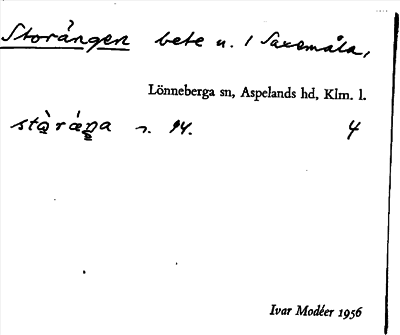 Storängen bete u. 1 Saxemåla,
Lönneberga sn, Aspelands hd, Klm. l.
n. 94. 4
Ivar Modéer 1956